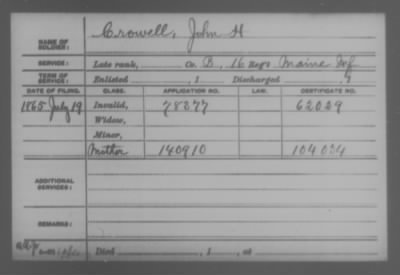 NAME OF SOLDIER: Crowell, John H
SERVICE: Late rank, Co. B, 16 Reg't Maine Inf
TERM OF SERVICE: Enlisted , 1 Discharged , 1
DATE OF FILING. CLASS. APPLICATION NO. LAW. CERTIFICATE NO.
1865 July 19 Invalid, 78377 62029
Widow,
Minor,
Mother 140910 104034
ADDITIONAL SERVICES:
REMARKS:
Died , 1 , at